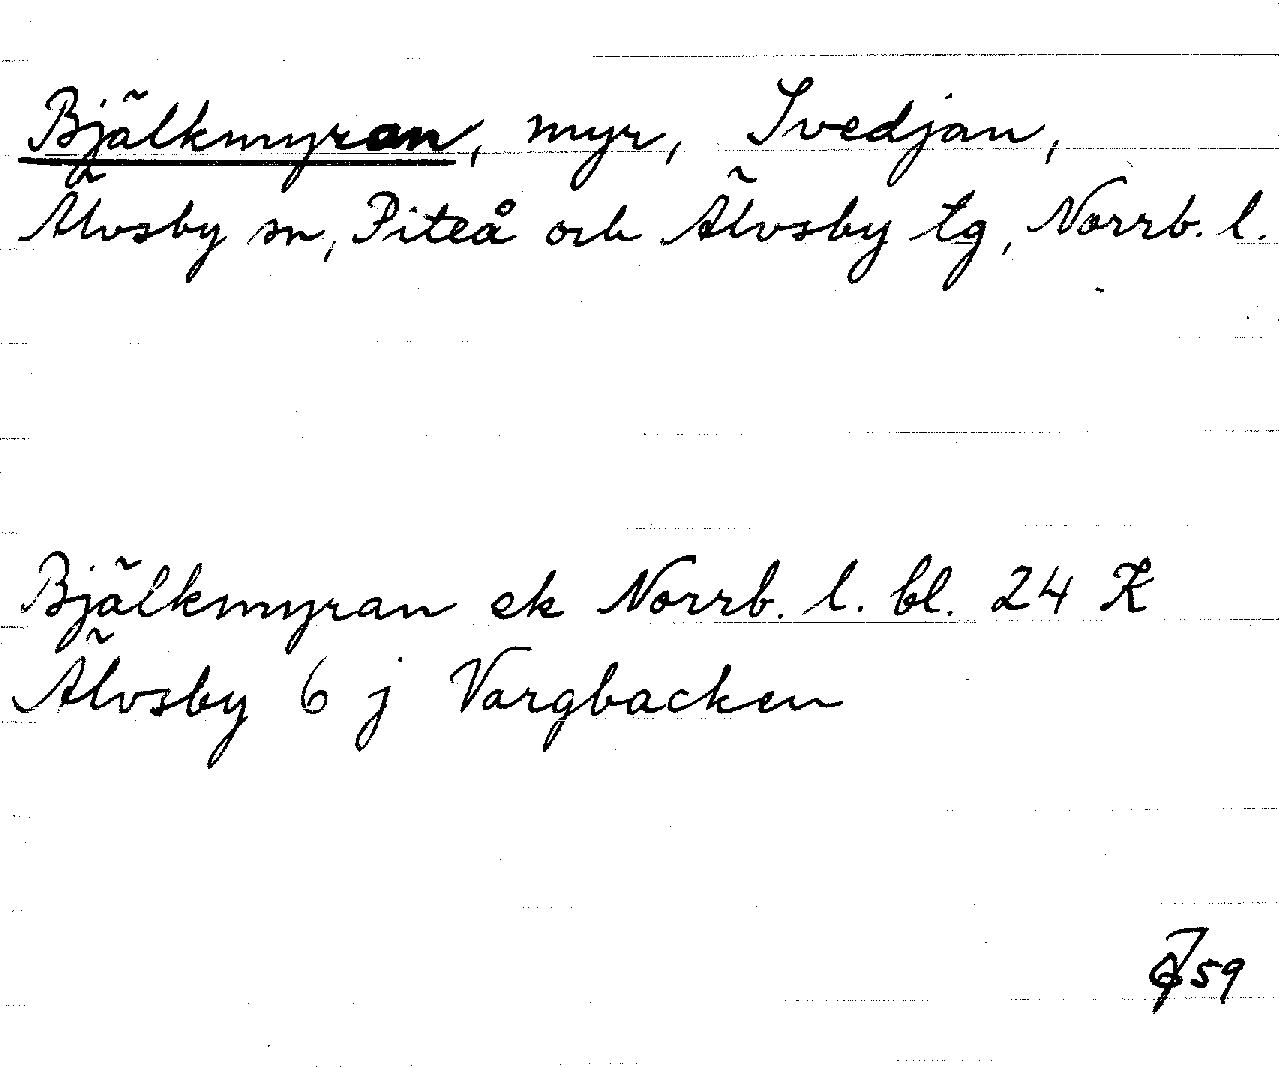 Bjälkmyran, myr, Svedjan,
Älvsby sn, Piteå och Älvsby tg, Norrb. l.
Bjälkmyran ek Norrb. l. bl. 24 K
Älvsby 6 j Vargbacken
59